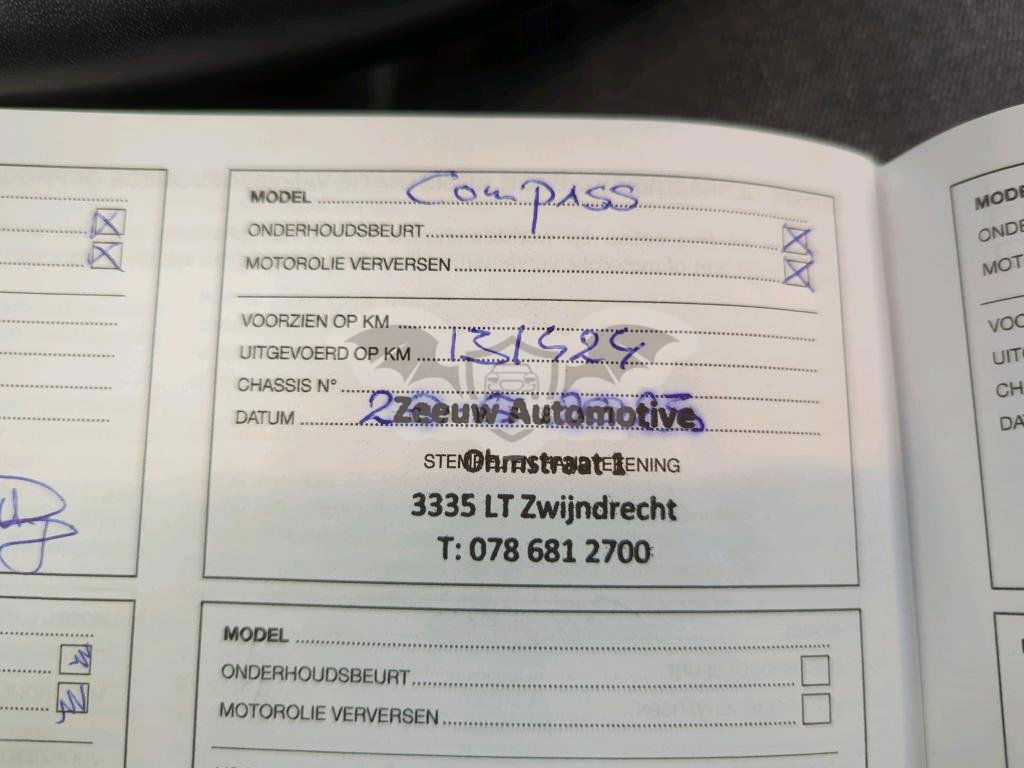 MODEL ComPASS
ONDERHOUDSBEURT
MOTOROLIE VERVERSEN
VOORZIEN OP KM
UITGEVOERD OP KM 131424
CHASSIS N°
DATUM
Zeeuw Automotive
Ohmstraat 1
3335 LT Zwijndrecht
T: 078 681 2700
MODEL
ONDERHOUDSBEURT
MOTOROLIE VERVERSEN